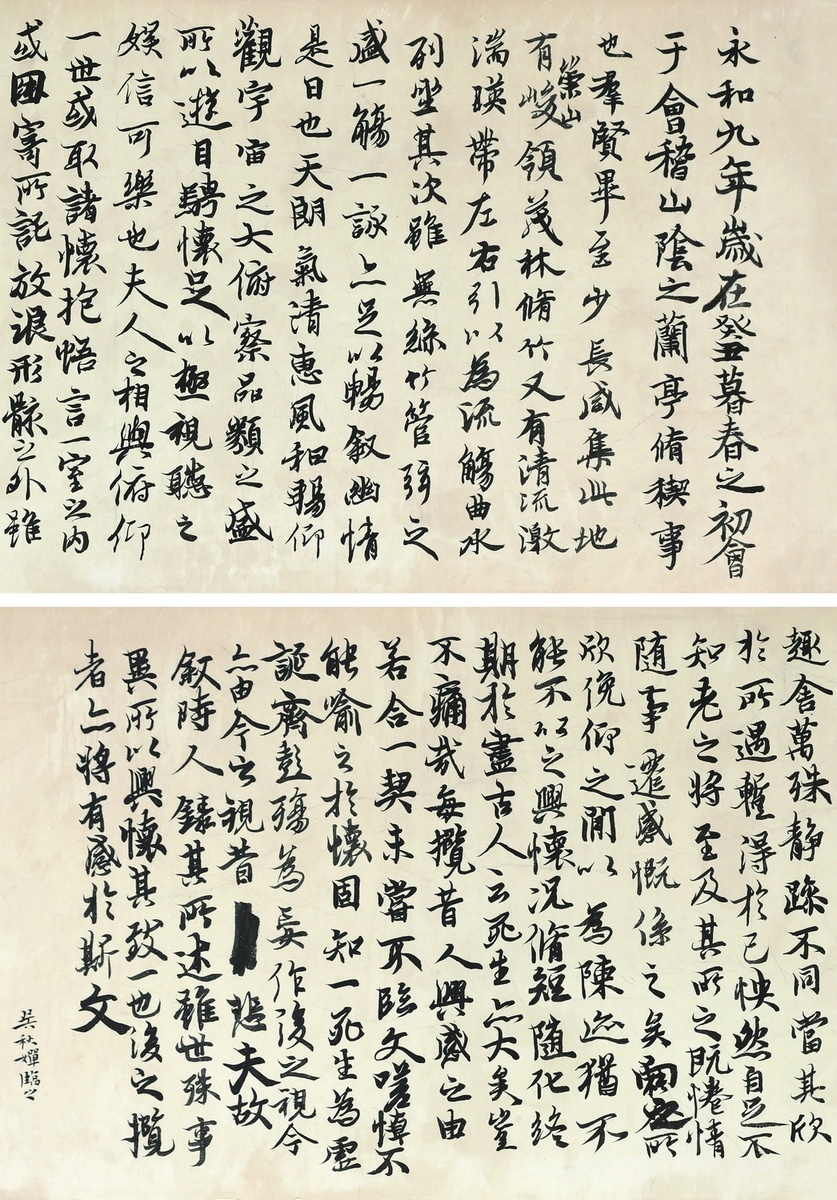 永和九年歲在癸丑暮春之初會
于會稽山陰之蘭亭脩稧事
也羣賢畢至少長咸集此地
有崇山峻領茂林脩竹又有清流激
湍暎帶左右引以為流觴曲水
列坐其次雖無絲竹管弦之
盛一觴一詠亦足以暢叙幽情
是日也天朗氣清惠風和暢仰
觀宇宙之大俯察品類之盛
所以遊目騁懷足以極視聽之
娛信可樂也夫人之相與俯仰
一世或取諸懷抱悟言一室之內
或因寄所託放浪形骸之外雖
趣舍萬殊靜躁不同當其欣
於所遇蹔得於己怏然自足不
知老之將至及其所之既惓情
隨事遷感慨係之矣向之所
欣俛仰之間以為陳迹猶不
能不以之興懷況脩短隨化終
期於盡古人云死生亦大矣豈
不痛哉每攬昔人興感之由
若合一契未嘗不臨文嗟悼不
能喻之於懷固知一死生為虛
誕齊彭殤為妄作後之視今
亦由今之視昔悲夫故
叙時人錄其所述雖世殊事
異所以興懷其致一也後之攬
者亦將有感於斯文
吳秋嬋臨之